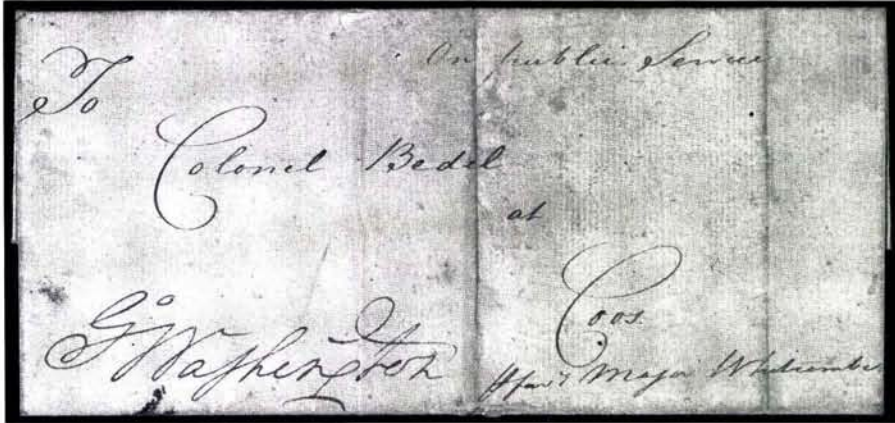 On public Service
To
Colonel Bedel
at
Coos.
Go. Washington
Major Whitcombe